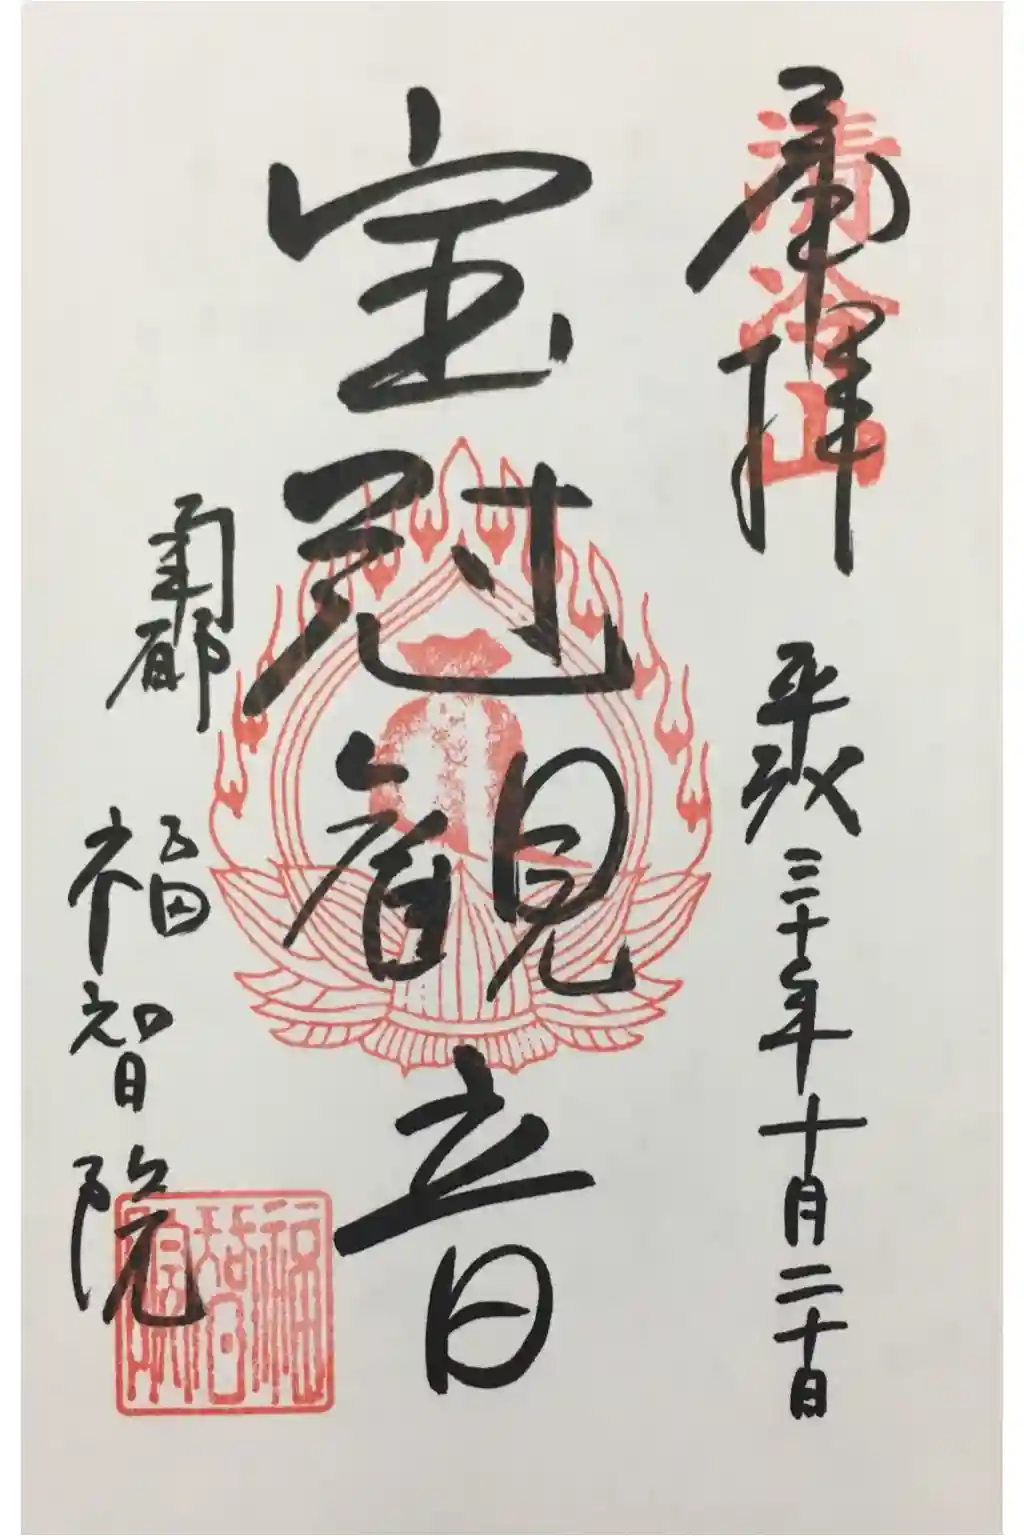 奉拝
清冷山
平成三十年十月二十日
宝冠観音
南都
福智院
福智院